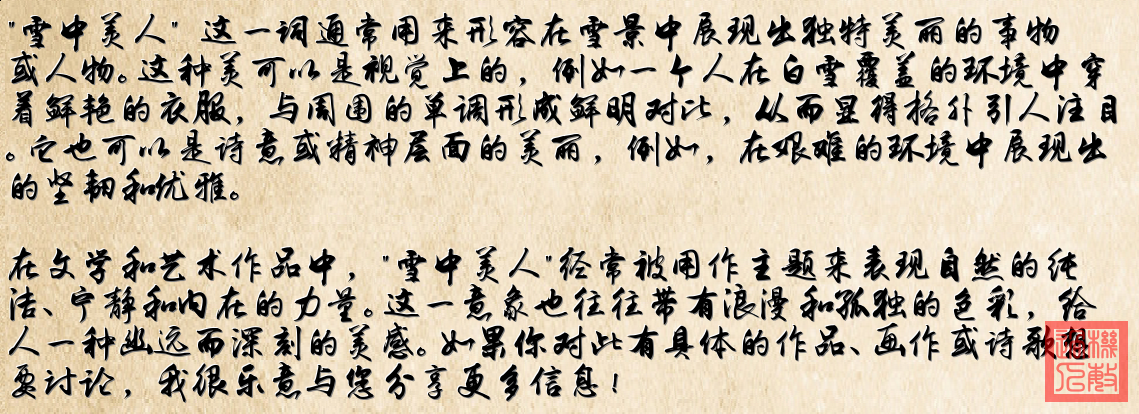 "雪中美人" 这一词通常用来形容在雪景中展现出独特美丽的事物
或人物。这种美可以是视觉上的，例如一个人在白雪覆盖的环境中穿
着鲜艳的衣服，与周围的单调形成鲜明对比，从而显得格外引人注目
。它也可以是诗意或精神层面的美丽，例如，在艰难的环境中展现出
的坚韧和优雅。
在文学和艺术作品中，"雪中美人"经常被用作主题来表现自然的纯
洁、宁静和内在的力量。这一意象也往往带有浪漫和孤独的色彩，给
人一种幽远而深刻的美感。如果你对此有具体的作品、画作或诗歌想
要讨论，我很乐意与您分享更多信息！